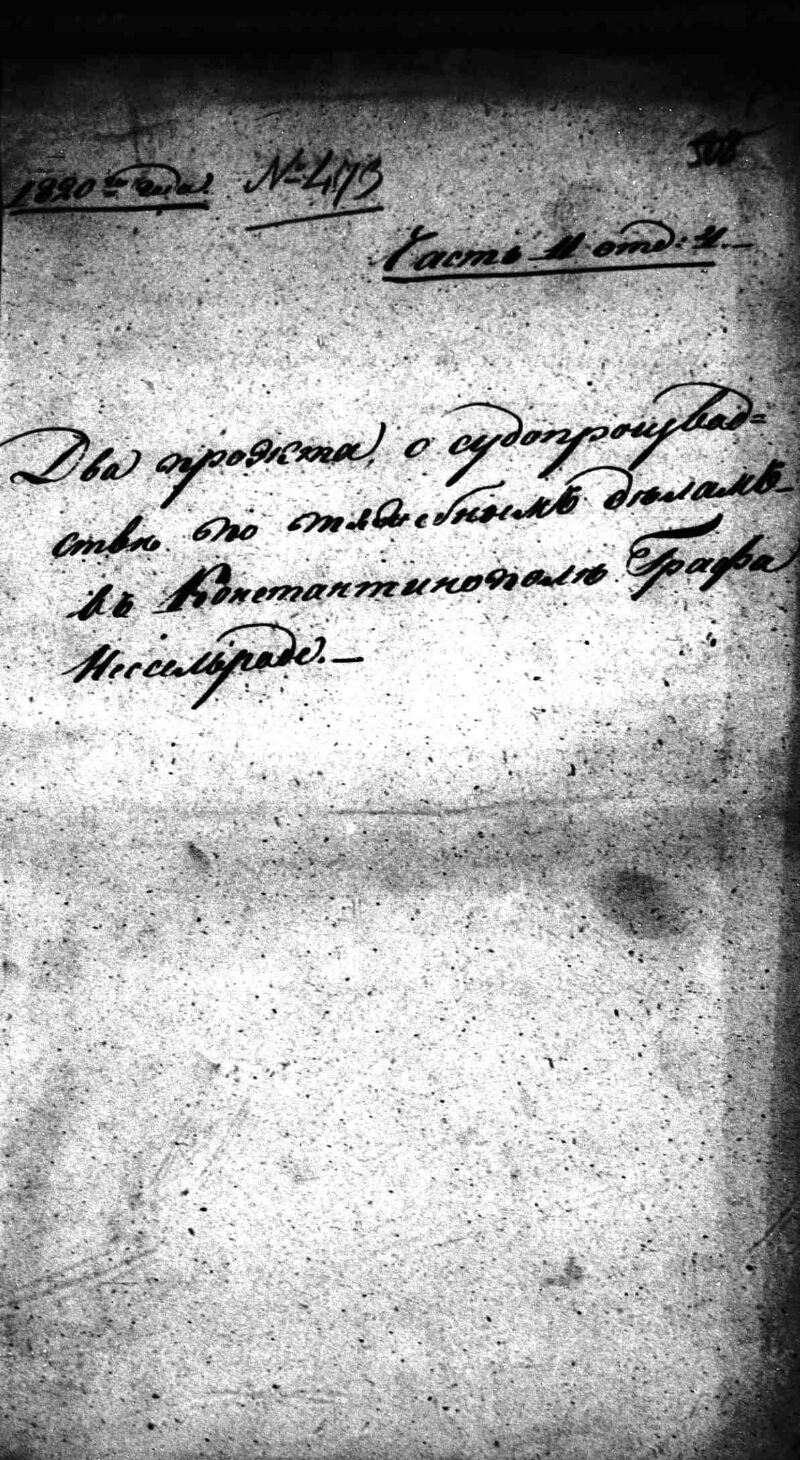 508
1820го года № 473
Часть II отд: II.—
Два проэкта о судопроизвод=
ствѣ по тяжебнымъ дѣламъ
въ Константинополѣ Графа
Нессельроде.—